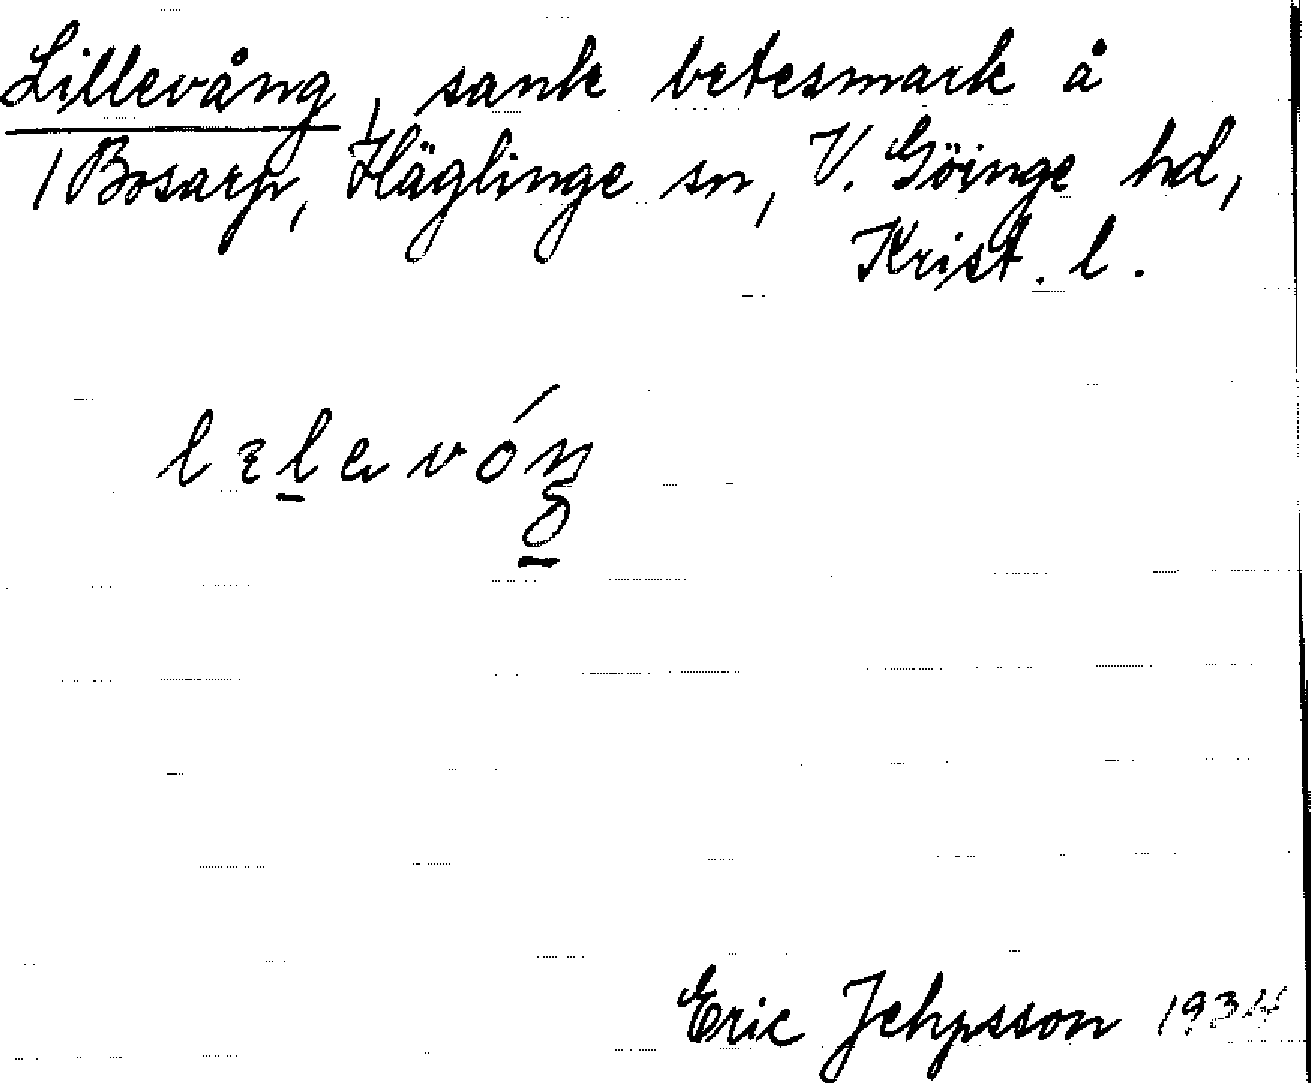 Lillevång, sank betesmark å
/Bosarp, Häglinge sn, V. Göinge hd,
Krist. l.
Eric Jehpsson 1934